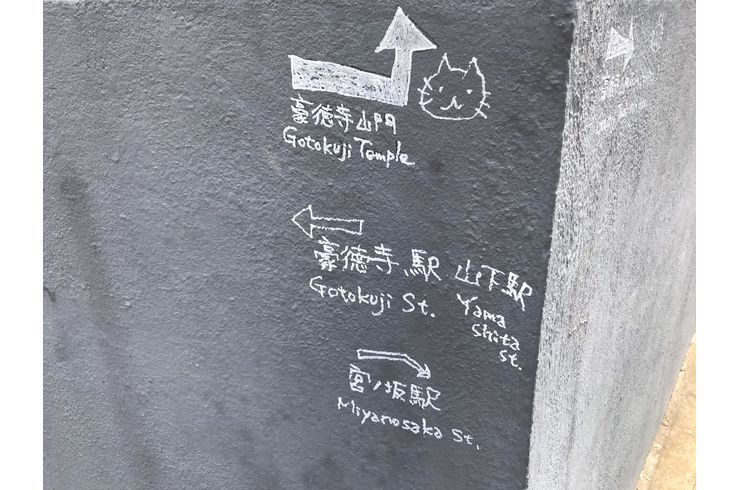 豪徳寺山門
Gotokuji Temple
豪徳寺駅 山下駅
Gotokuji St. Yama
shita
st.
宮ノ坂駅
Miyanosaka St.